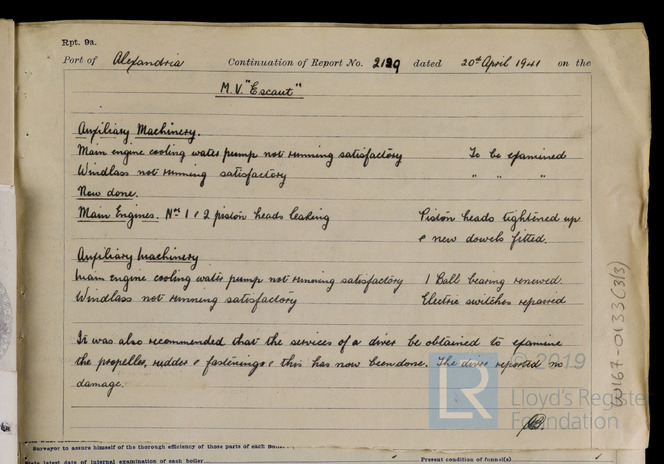 Rpt. 9a.
Port of Alexandria Continuation of Report No. 2129 dated 20th April 1941 on the
M.V. "Escaut"
Auxiliary Machinery.
Main engine cooling water pump not running satisfactory To be examined
Windlass not running satisfactory " " "
Now done.
Main Engines. Nos 1 & 2 piston heads leaking Piston heads tightened up
& new dowels fitted.
Auxiliary Machinery
Main engine cooling water pump not running satisfactory 1 Ball bearing renewed.
Windlass not running satisfactory Electric switches repaired
It was also recommended that the services of a diver be obtained to examine
the propeller, rudder & fastenings & this has now been done. The diver reported no
damage.
W167-0133(3/3)
© 2019
LR
Lloyd's Register
Foundation
Surveyor to assure himself of the thorough efficiency of those parts of each Boiler
State latest date of internal examination of each boiler Present condition of funnel(s)